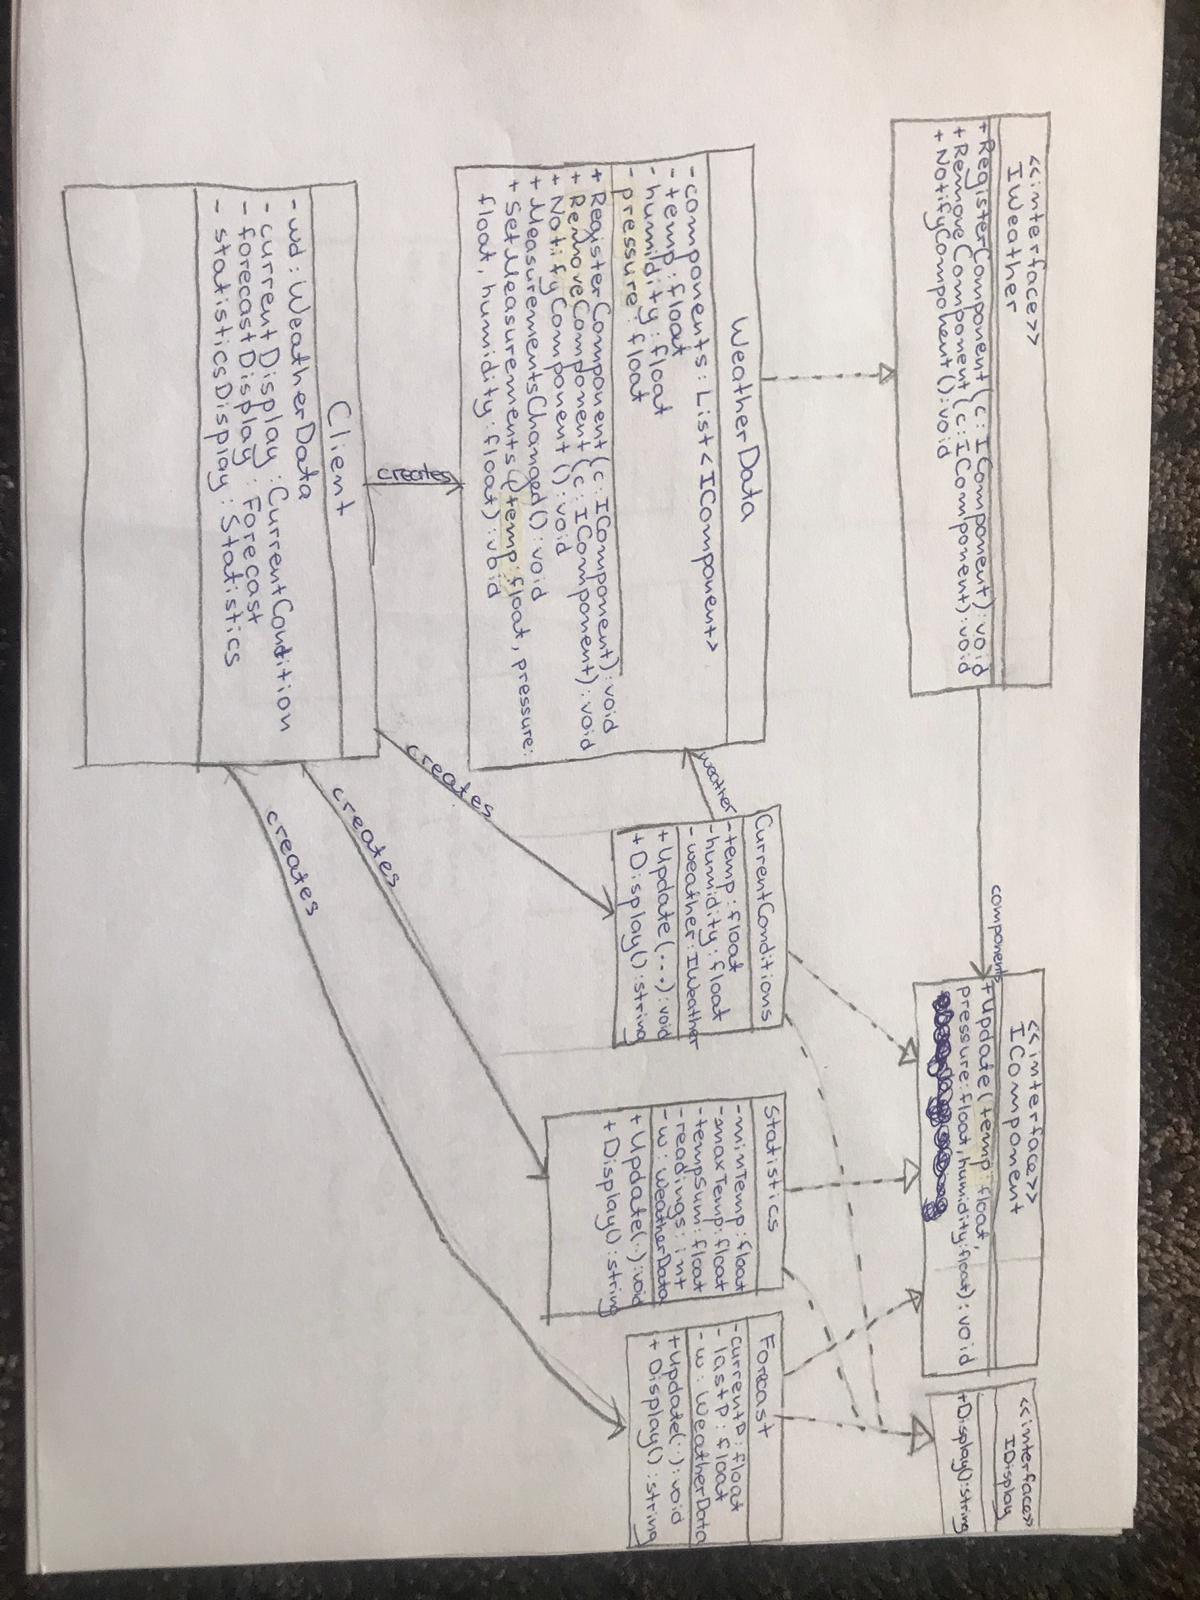 <<interface>>
IWeather
+RegisterComponent(c:IComponent):void
+RemoveComponent(c:IComponent):void
+NotifyComponent():void
components
<<interface>>
IComponent
+Update(temp:float,
pressure:float,humidity:float):void
<<interface>>
IDisplay
+Display():string
WeatherData
-components:List<IComponent>
-temp:float
-humidity:float
-pressure:float
+RegisterComponent(c:IComponent):void
+RemoveComponent(c:IComponent):void
+NotifyComponent():void
+MeasurementsChanged():void
+SetMeasurements(temp:float, pressure:
float, humidity:float):void
weather
CurrentConditions
-temp:float
-humidity:float
-weather:IWeather
+Update(...):void
+Display():string
Statistics
-minTemp:float
-maxTemp:float
-tempSum:float
-readings:int
-w:WeatherData
+Update(..):void
+Display():string
Forecast
-currentP:float
-lastP:float
-w:WeatherData
+Update(..):void
+Display():string
creates
creates
creates
creates
Client
-wd:WeatherData
-currentDisplay:CurrentCondition
-forecastDisplay:Forecast
-statisticsDisplay:Statistics